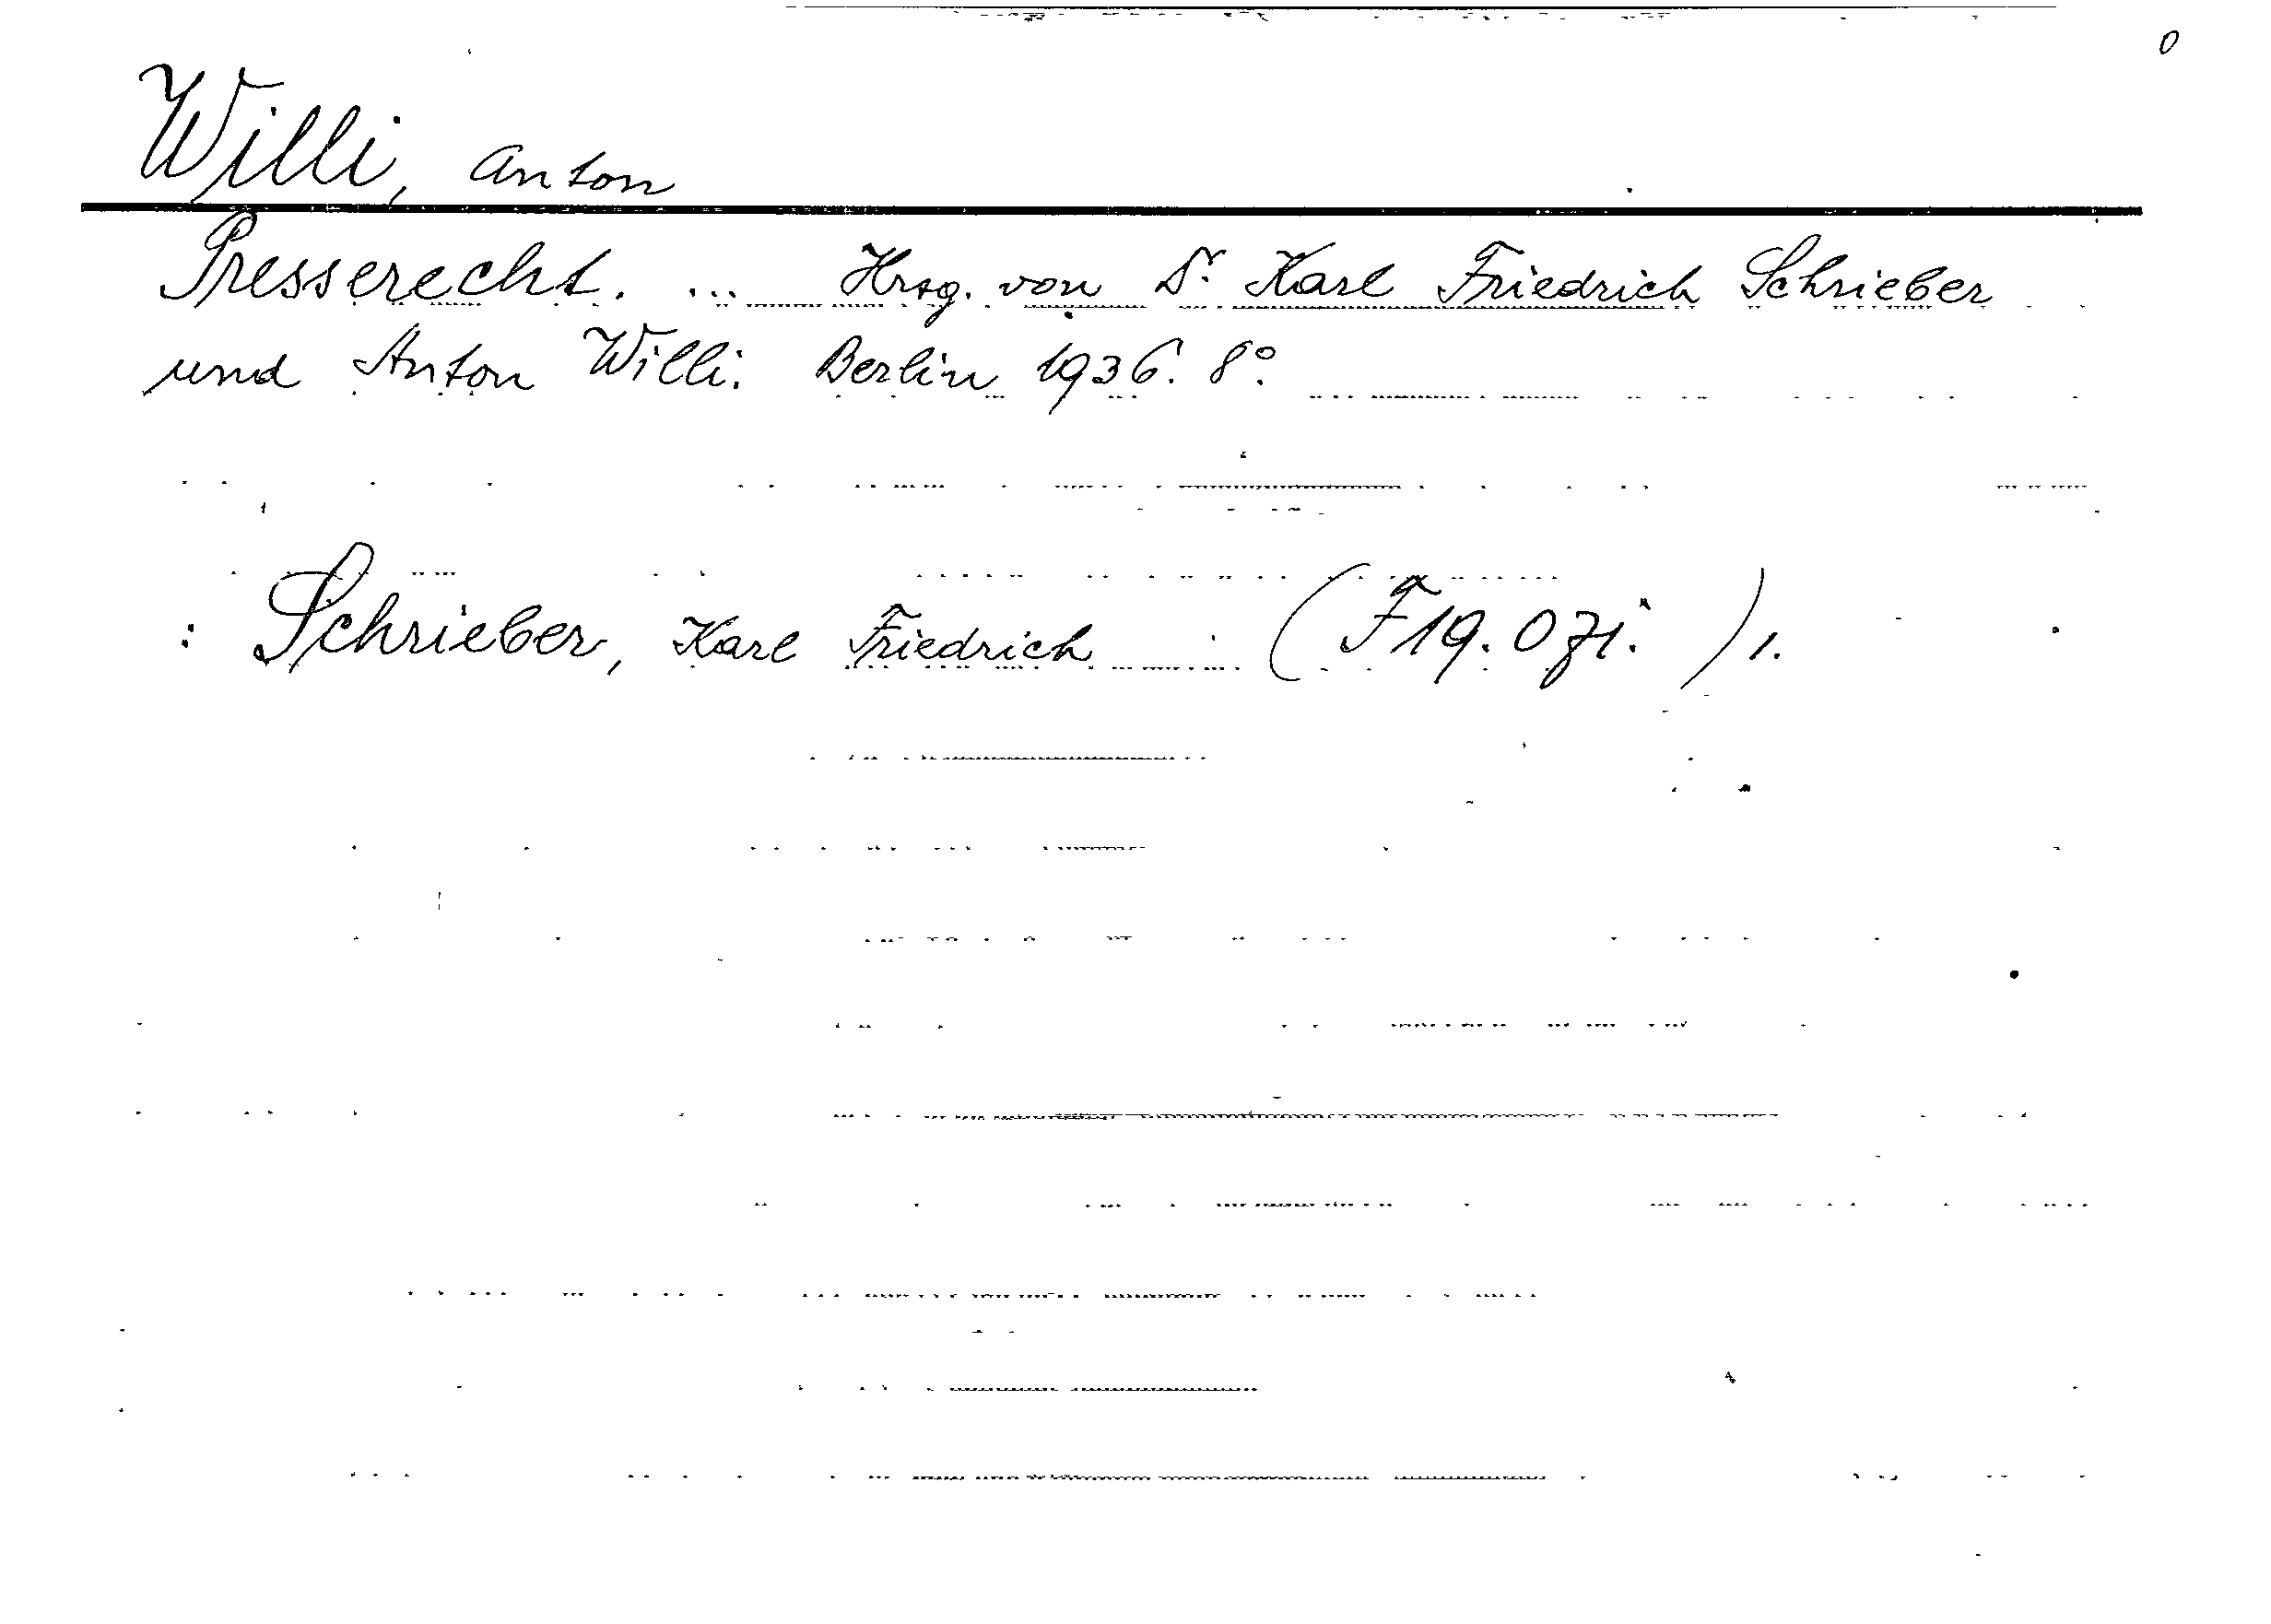 0
Willi, Anton
Presserecht. ... Hrsg. von Dr. Karl Friedrich Schrieber
und Anton Willi. Berlin 1936. 8°.
: Schrieber, Karl Friedrich (F19. 071. ) 1.